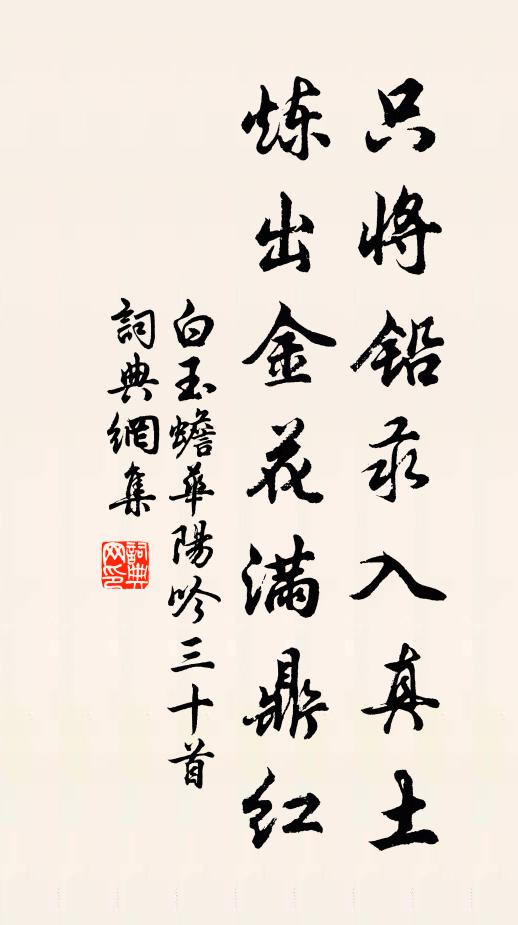 只將鉛汞入真土
炼出金花满鼎红
白玉蟾華陽吟三十首
詞典網集
詞典网印